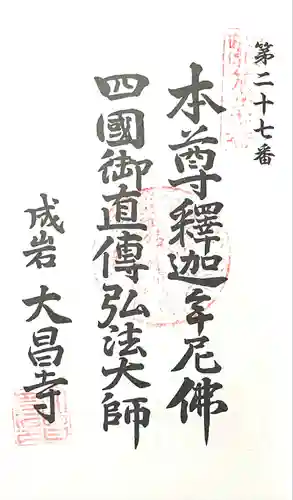 第二十七番
本尊釋迦牟尼佛
四國御直傳弘法大師
成岩 大昌寺